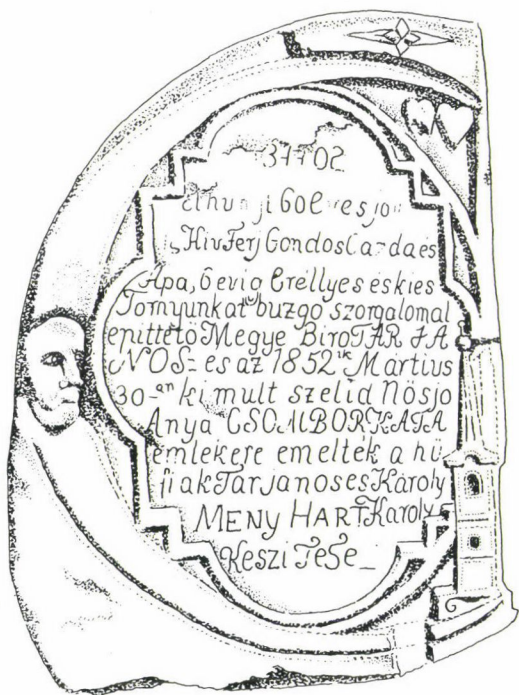 Hiv Ferj Gondos Cazdaes
Apa, 6 evig Erellyes eskies
Tornyunkat buzgo szorgalomal
epitteto Megye Biro TAR JA
NOS= es az 1852ik Martius
30-an ki mult szelid Nösjo
Anya CSOMBORKATA
emlekere emeltek a hü
fiak Tarjanoses Karoly
MENY HART Karoly
Keszi Tese_